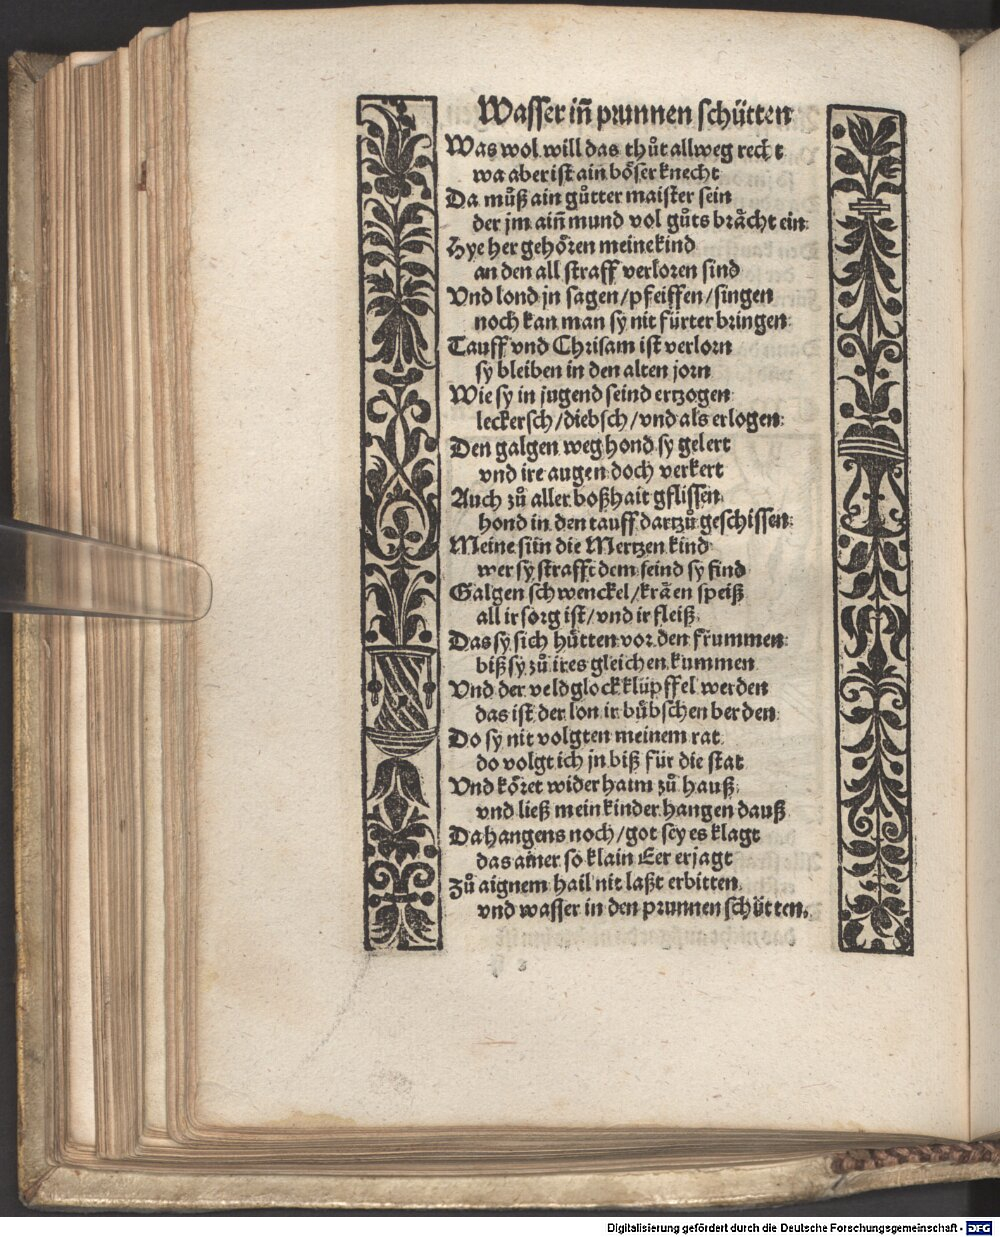 Wasser iñ prunnen schütten
Was wol will das thůt allweg recht
wa aber ist ain böser knecht
Da můß ain gůtter maister sein
der jm aiñ mund vol gůts brächt ein:
Hye her gehören meine kind
an den all straff verloren sind
Vnd lond jn sagen/pfeiffen/singen
noch kan man sy nit fürter bringen:
Tauff vnd Chrisam ist verlorn
sy bleiben in den alten jorn
Wie sy in jugend seind ertzogen
leckersch/diebsch/vnd als erlogen:
Den galgen weg hond sy gelert
vnd ire augen doch verkert
Auch zů aller boßhait gflissen
hond in den tauff dartzů geschissen:
Meine sün die Mertzen kind
wer sy strafft dem seind sy find
Galgen schwenckel/kräen speiß
all ir sorg ist/vnd ir fleiß
Das sy sich hütten vor den frummen:
biß sy zů ires gleichen kummen
Vnd der veldglock klüpffel werden
das ist der lon ir bübschen berden:
Do sy nit volgten meinem rat
do volgt ich jn biß für die stat
Vnd köret wider haim zů hauß:
vnd ließ mein kinder hangen dauß
Da hangens noch/got sey es klagt
das ainer so klain Eer erjagt
Zů aignem hail nit laßt erbitten
vnd wasser in den prunnen schütten.
Digitalisierung gefördert durch die Deutsche Forschungsgemeinschaft - DFG